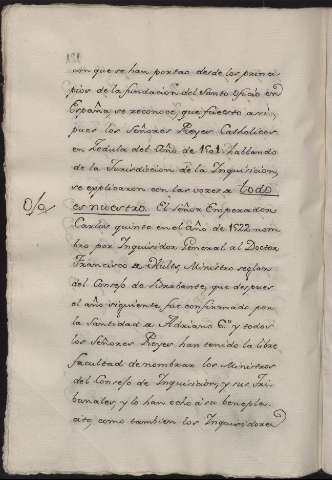 con que se han portado desde los princi-
pios de la fundacion del Santo Oficio en
España, se reconoce, que fuesse assi;
pues los Señores Reyes Catholicos
en Zedula del Año de 1501 hablando
de la Jurisdiccion de la Inquisicion,
se explicaron con las vozes de todo
es nuestro. El Señor Emperador
Carlos quinto en el año de 1522 nom-
bro por Inquisidor General al Doctor
Francisco de Hults, Ministro seglar
del Consejo de Brabante, que despues
el año siguiente fue confirmado por
la Santidad de Adriano 6º y todos
los Señores Reyes han tenido la libre
facultad de nombrar los Ministros
del Consejo de Inquisicion, y sus Tri-
bunales, y lo han echo a su benepla-
cito, como tambien los Inquisidores